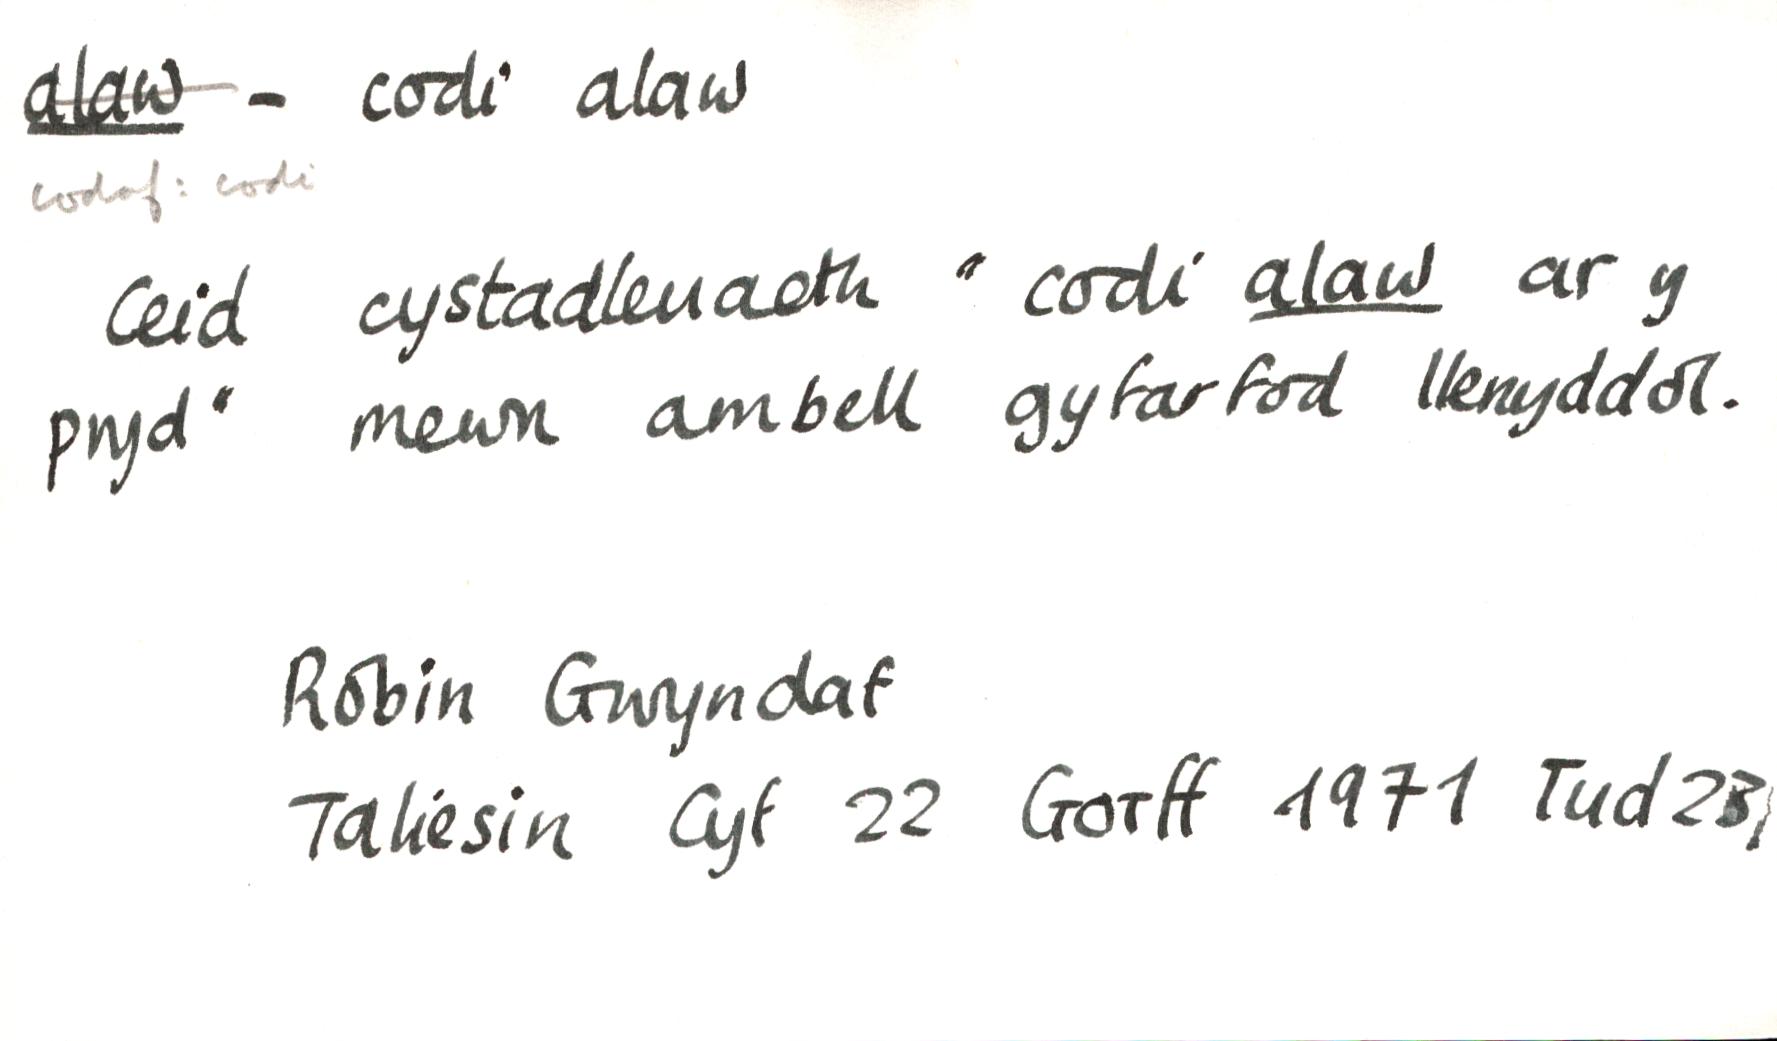 alaw - codi alaw
codaf: codi
Ceid cystadleuaeth "codi alaw ar y
pryd" mewn ambell gyfarfod llenyddol.
Robin Gwyndaf
Taliesin Cyf 22 Gorff 1971 Tud